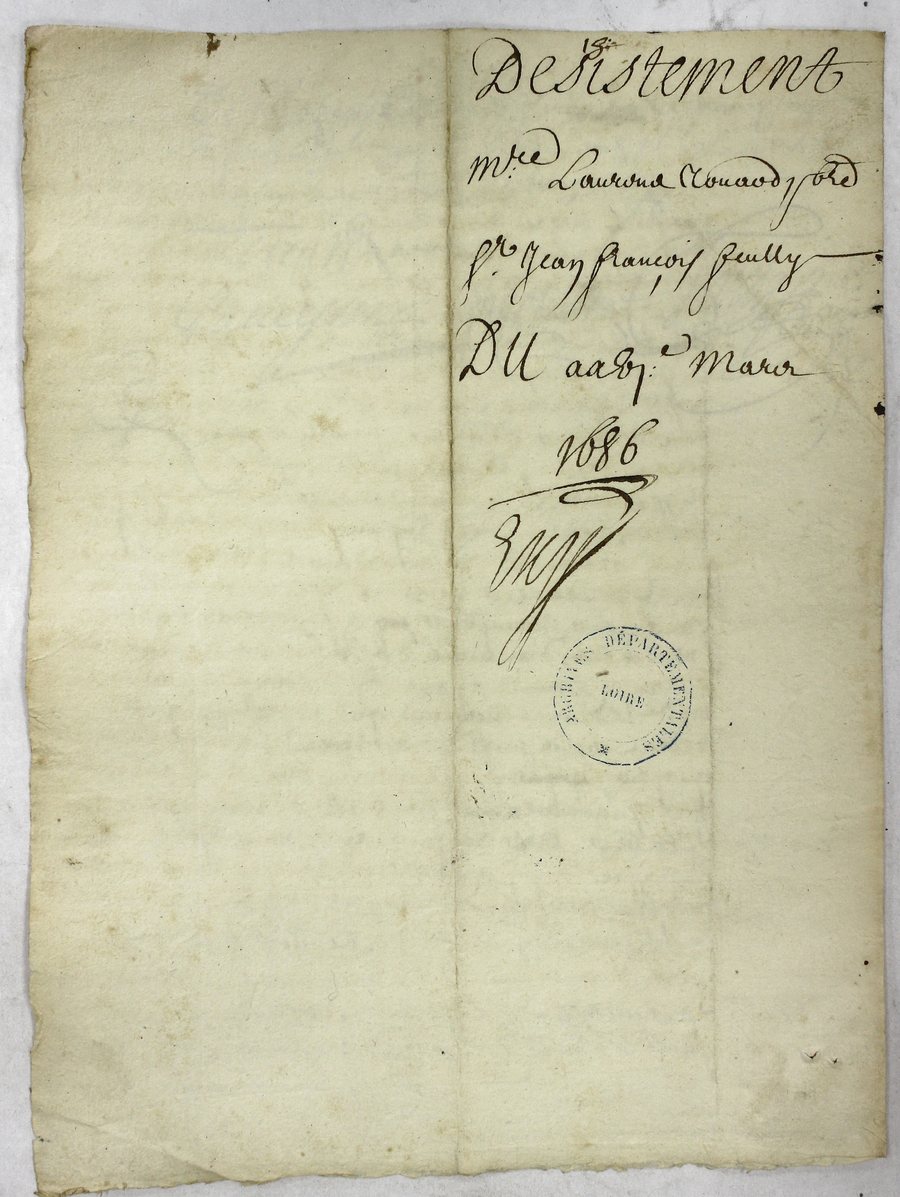 18
Desistement
Mre Laurond Rouaod, pbre
Sr Jean françois feully
DU Mars
1686
ARCHIVES DÉPARTEMENTALES
LOIRE